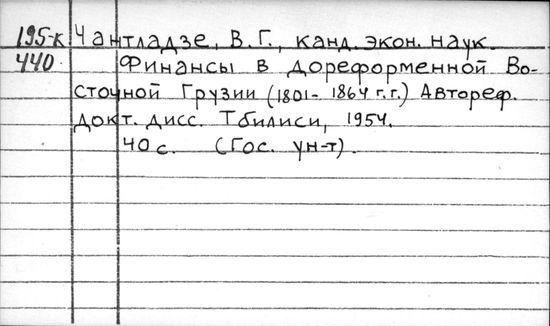 195-к Чантладзе, В.Г., канд. экон. наук.
440. Финансы в дореформенной Во-
сточной Грузии (1801-1864 г.г.) Автореф.
докт. дисс. Тбилиси, 1954.
40 с. (Гос. ун-т).